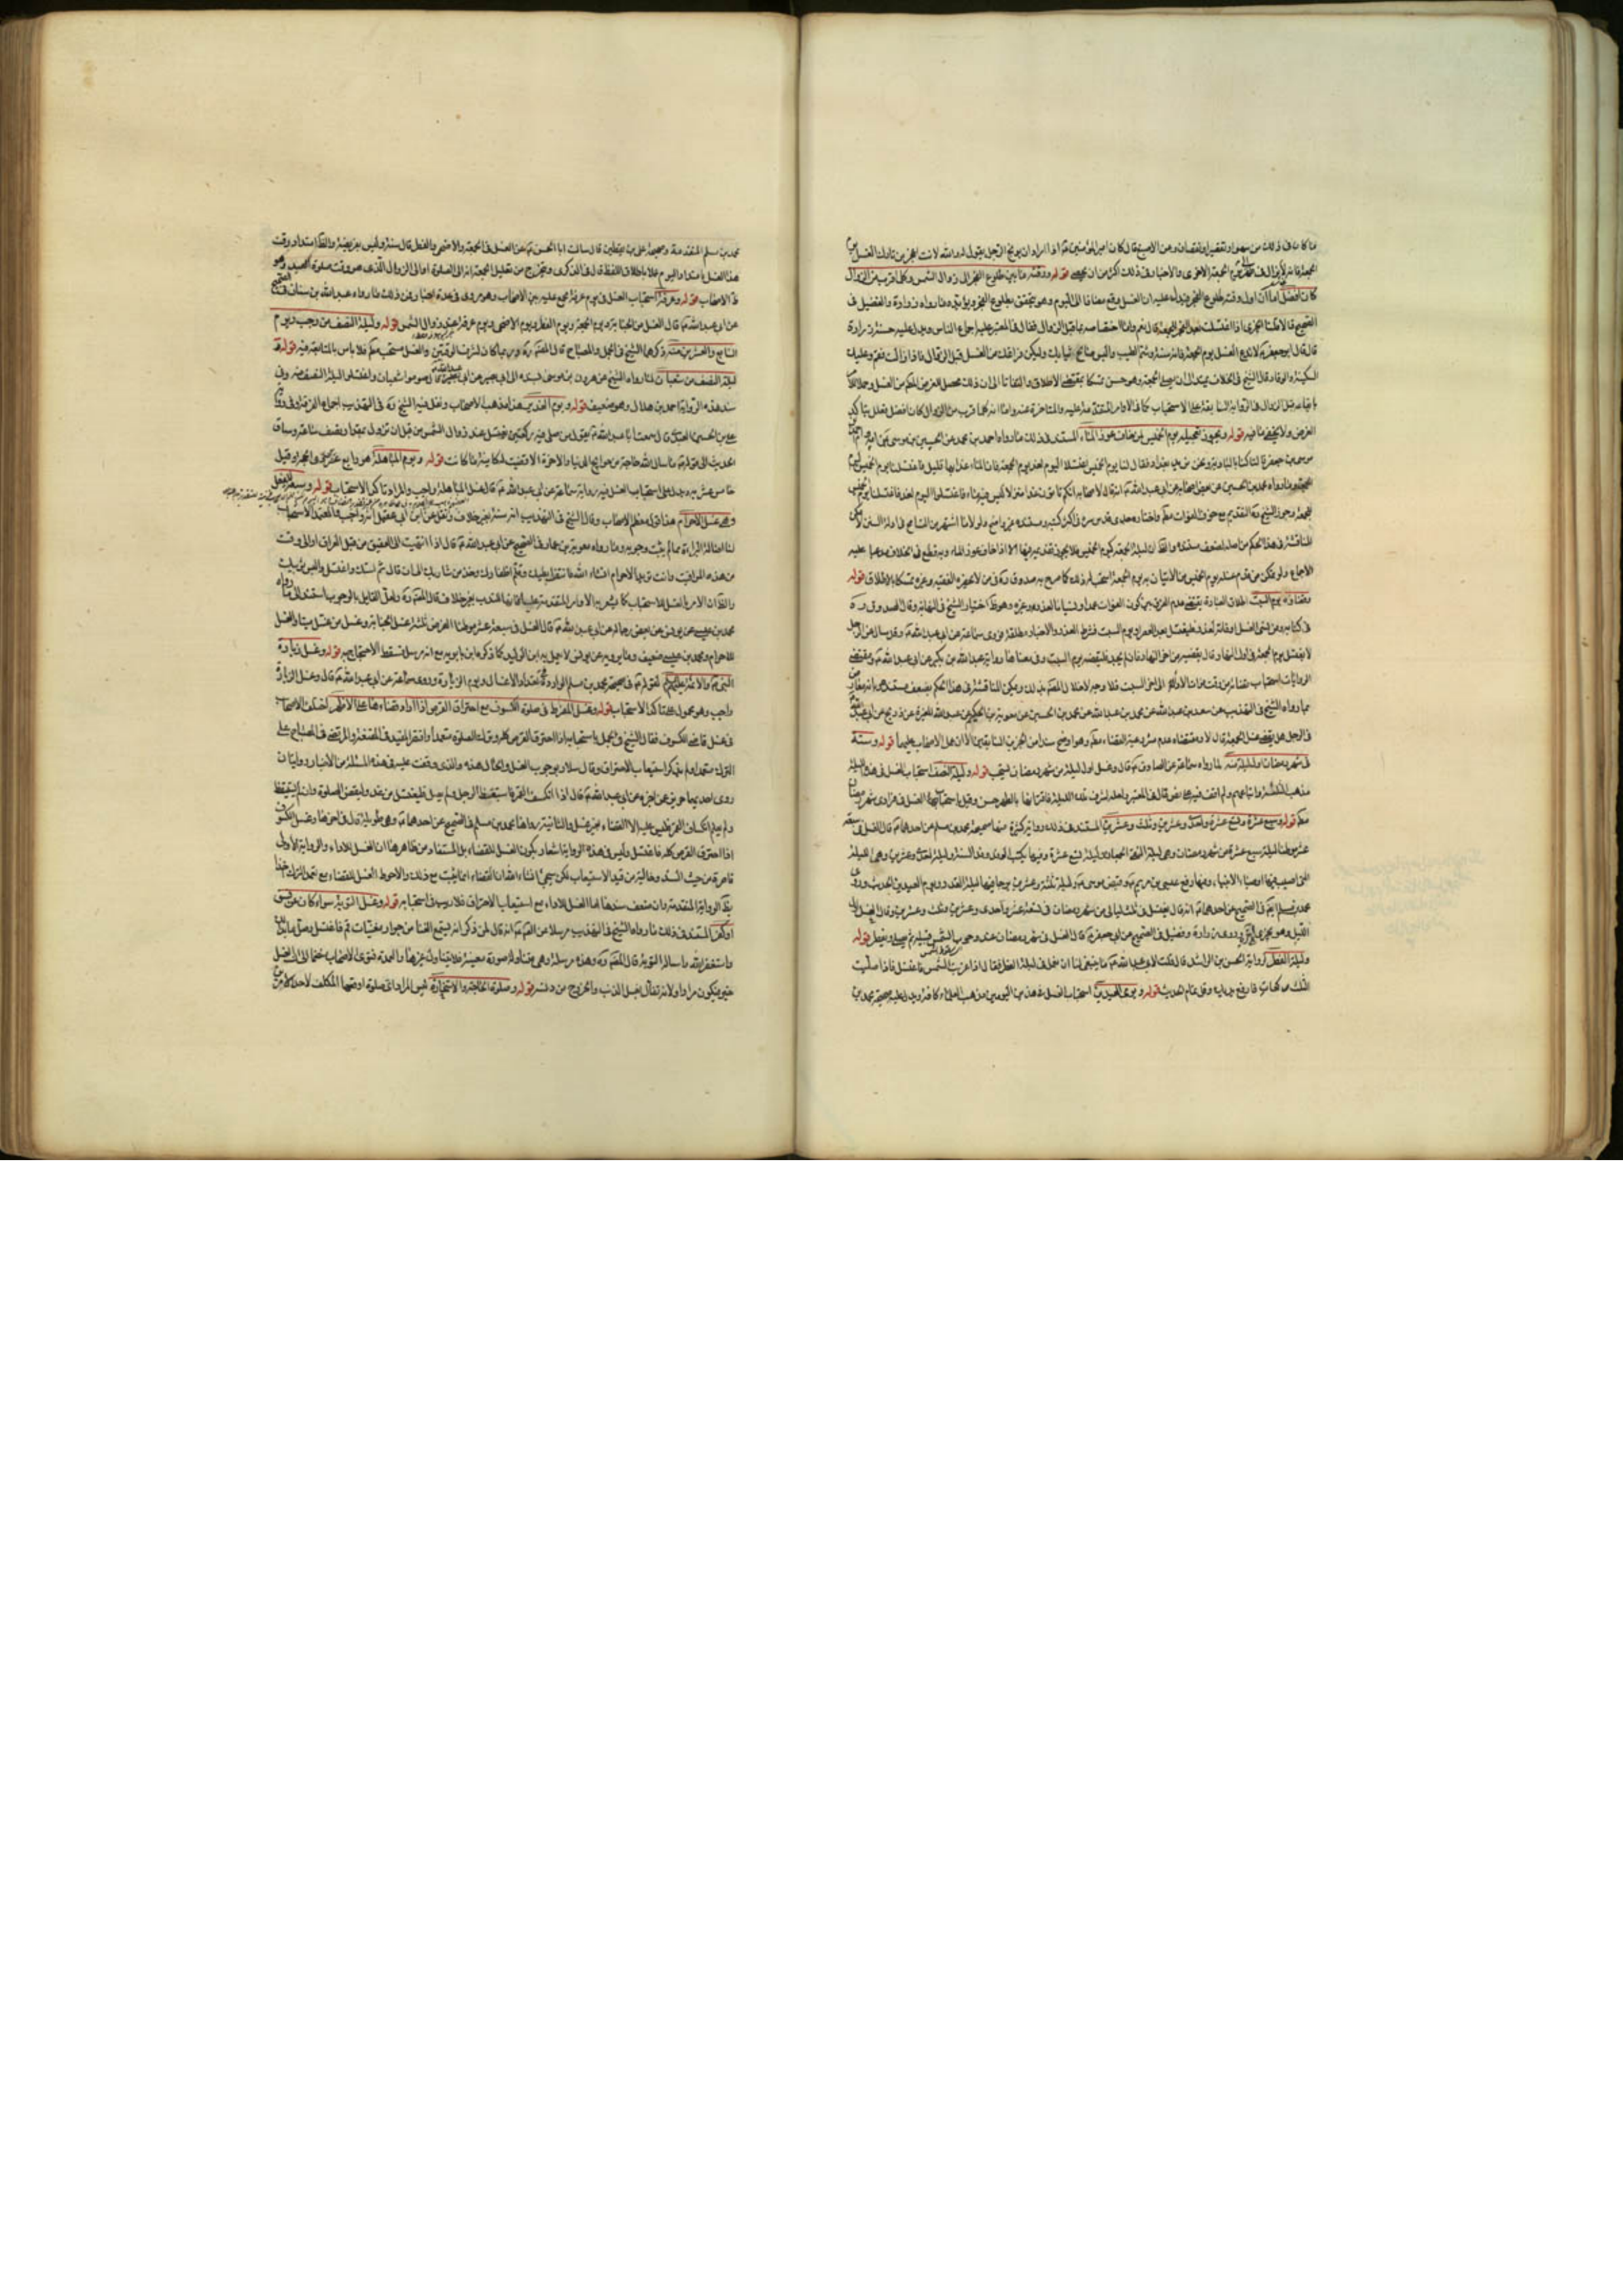 ما كان فى ذلك من سهو او تقصير او نقصان وعن الاصبغ قال كان امير المؤمنين ع اذا اراد ان يوبخ الرجل يقول له والله لانت اعجز من تارك الغسل يوم
الجمعة فانه لا يزال فى طهر الى الجمعة الاخرى والاخبار فى ذلك اكثر من ان تحصى قوله ووقته ما بين طلوع الفجر الى زوال الشمس وكلما قرب من الزوال
كان افضل اما ان اول وقته طلوع الفجر فيدل عليه ان الغسل وقع مضافا الى اليوم وهو يتحقق بطلوع الفجر ويؤيده ما رواه زرارة والفضيل فى
الصحيح قالا قلنا ايجزى اذا اغتسلت بعد الفجر للجمعة قال نعم واما اختصاصه بما قبل الزوال فقال فى المعتبر عليه اجماع الناس ويدل عليه حسنة زرارة
قال قال ابو جعفر ع لا تدع الغسل يوم الجمعة فانه سنة وشم الطيب والبس صالح ثيابك وليكن فراغك من الغسل قبل الزوال فاذا زالت فقم وعليك
السكينة والوقار وقال الشيخ فى الخلاف يمتد الى ان يصلى الجمعة وهو حسن تمسكا بمقتضى الاطلاق والتفاتا الى ان ذلك محصل للغرض المطلوب من الغسل وحملا
بايقاعه قبل الزوال فى الرواية السابقة على الاستحباب كما فى الاوامر المتقدمة عليه والمتاخرة عنه واما انه كلما قرب من الزوال كان افضل فعلل بتاكد
الغرض ولا يخفى ما فيه قوله ويجوز تعجيله يوم الخميس لمن خاف عوز الماء المستند فى ذلك ما رواه احمد بن محمد عن الحسين بن موسى عن امه وام احمد بن
موسى بن جعفر ع قالتا كنا بالبادية ونحن نريد بغداد فقال لنا يوم الخميس اغتسلا اليوم لغد يوم الجمعة فان الماء غدا بها قليل فاغتسلنا يوم الخميس ليوم
الجمعة وما رواه محمد بن الحسين عن بعض اصحابه عن ابى عبد الله ع انه قال لاصحابه انكم تاتون غدا منزلا ليس فيه ماء فاغتسلوا اليوم لغد فاغتسلنا يوم الخميس
للجمعة وجوز الشيخ ره التقديم مع خوف الفوات
المناقشة فى هذا الحكم من اصله لضعف مستنده والظ ان ليلة الجمعة كيوم الخميس فلا يجوز تقديمه فيها الا اذا خاف عوز الماء وبه قطع فى الخلاف مدعيا عليه
الاجماع ولو تمكن من قدم غسله يوم الخميس من الاتيان به يوم الجمعة استحب له ذلك كما صرح به الصدوق ره فى من لا يحضره الفقيه وغيره تمسكا بالاطلاق قوله
وقضاؤه يوم السبت اطلاق العبارة يقتضى عدم الفرق بين كون الفوات عمدا او نسيانا لعذر او غيره وهو ظ اختيار الشيخ فى النهاية وقال الصدوق ره
فى كتابه ومن نسى الغسل او فاته لعذر فليغتسل بعد العصر او يوم السبت
لا يغتسل يوم الجمعة فى اول النهار قال يقضيه من اخر النهار فان لم يجد فليقضه يوم السبت وفى معناها رواية عبد الله بن بكير عن ابى عبد الله ع ومقتضى
الروايات استحباب قضائه من وقت فوات الاداء الى اخر السبت
مما رواه الشيخ فى التهذيب عن سعد بن عبد الله عن محمد بن عبد الله عن محمد بن الحسين عن معوية بن حكيم عن عبد الله بن المغيرة عن ذريح عن ابى عبد الله ع
فى الرجل هل يقضى غسل الجمعة قال لا ومقتضاه عدم مشروعية القضاء مطلقا وهو اوضح سندا من الخبرين السابقين الا ان عمل الاصحاب عليهما قوله وستة
فى شهر رمضان اول ليلة منه لما رواه سماعة عن الصادق ع قال وغسل اول ليلة من شهر رمضان مستحب قوله وليلة النصف استحباب الغسل فى هذه الليلة
مذهب الثلثة واتباعهم ولم اقف فيه على نص قال فى المعتبر ولعله لشرف تلك الليلة فاقترانها بالطهر حسن
قوله وسبع عشرة وتسع عشرة واحدى وعشرين وثلث وعشرين المستند فى ذلك روايات كثيرة منها صحيحة محمد بن مسلم عن احدهما ع قال الغسل فى سبعة
عشر موطنا ليلة سبع عشرة من شهر رمضان وهى ليلة التقى الجمعان وليلة تسع عشرة وفيها يكتب الوفد وفد السنة وليلة احدى وعشرين وهى الليلة
التى اصيب فيها اوصياء الانبياء وفيها رفع عيسى بن مريم ع وقبض موسى ع وليلة ثلثة وعشرين يرجى فيها ليلة القدر ويوم العيدين الحديث وروى
محمد بن مسلم ايضا فى الصحيح عن احدهما ع انه قال يغتسل فى ثلث ليالى من شهر رمضان فى تسعة عشر واحدى وعشرين وثلث وعشرين وقال الغسل اول
الليل وهو يجزى الى اخره وروى زرارة وفضيل فى الصحيح عن ابى جعفر ع قال الغسل فى شهر رمضان عند وجوب الشمس قبيله ثم يصلى ويفطر قوله
وليلة الفطر لرواية الحسن بن راشد قال قلت لابى عبد الله ع ما ينبغى لنا ان نعمل فى ليلة الفطر فقال اذا غربت الشمس فاغتسل فاذا صليت
الثلث ركعات فارفع يديك وقل تمام الحديث قوله ويومى العيدين استحباب الغسل فى هذين اليومين مذهب العلماء كافة ويدل عليه صحيحة محمد بن
محمد بن مسلم المتقدمة وصحيحة على بن يقطين قال سالت ابا الحسن ع عن الغسل فى الجمعة والاضحى والفطر قال سنة وليس بفريضة والظ امتداد وقت
هذا الغسل بامتداد اليوم عملا باطلاق اللفظ قال فى الذكرى ويتخرج من تعليل الجمعة انه الى الصلوة او الى الزوال الذى هو وقت صلوة العيد وهو
ظ الاصحاب قوله وعرفة استحباب الغسل فى يوم عرفة مجمع عليه بين الاصحاب وهو مروى فى عدة اخبار فمن ذلك ما رواه عبد الله بن سنان فى الصحيح
عن ابى عبد الله ع قال الغسل من الجنابة ويوم الجمعة ويوم الفطر ويوم الاضحى ويوم عرفة عند زوال الشمس قوله وليلة النصف من رجب ويوم
السابع والعشرين منه ذكرهما الشيخ فى الجمل والمصباح قال المصنف ره وربما كان لشرف الوقتين والغسل مستحب مطلقا فلا باس بالمتابعة فيه قوله
ليلة النصف من شعبان لما رواه الشيخ عن هرون بن موسى بسنده الى ابى بصير عن ابى عبد الله ع صوموا شعبان واغتسلوا ليلة النصف منه وفى
سند هذه الرواية احمد بن هلال وهو ضعيف قوله ويوم الغدير هذا مذهب الاصحاب ونقل فيه الشيخ ره فى التهذيب اجماع الفرقة وفى رواية
على بن الحسين العبدى قال سمعت ابا عبد الله ع يقول من صلى فيه ركعتين يغتسل عند زوال الشمس من قبل ان تزول بمقدار نصف ساعة وساق
الحديث الى قوله ع ما سال الله حاجة من حوائج الدنيا والاخرة الا قضيت له كائنة ما كانت قوله ويوم المباهلة هو رابع عشرى ذى الحجة وقيل
خامس عشريه ويدل على استحباب الغسل فيه رواية سماعة عن ابى عبد الله ع قال غسل المباهلة واجب والمراد تاكد الاستحباب قوله وسبعة للفعل
وهى غسل الاحرام هذا قول معظم الاصحاب وقال الشيخ فى التهذيب انه سنة بغير خلاف ونقل عن ابن ابى عقيل انه واجب والمعتمد الاستحباب
لنا اصالة البراءة مما لم يثبت وجوبه وما رواه معوية بن عمار فى الصحيح عن ابى عبد الله ع قال اذا انتهيت الى العقيق من قبل العراق او الى وقت
من هذه المواقيت وانت تريد الاحرام انشاء الله فانتف ابطيك وقلم اظفارك وخذ من شاربك الى ان قال ثم استك واغتسل والبس ثوبيك
والظ ان الامر بالغسل للاستحباب كما يشعر به الاوامر المتقدمة عليه
محمد بن عيسى عن يونس عن بعض رجاله عن ابى عبد الله ع قال الغسل فى سبعة عشر موطنا الفرض ثلثة غسل الجنابة وغسل من غسل ميتا والغسل
للاحرام ومحمد بن عيسى ضعيف وما يرويه عن يونس لا يعمل به ابن الوليد كما ذكره ابن بابويه مع انه مرسل فسقط الاحتجاج به قوله وغسل زيارة
النبى ص والائمة عليهم السلام لقوله ع فى صحيحة محمد بن مسلم الواردة فى تعداد الاغسال ويوم الزيارة وروى سماعة عن ابى عبد الله ع قال وغسل الزيارة
واجب وهو محمول على تاكد الاستحباب قوله وغسل المفرط فى صلوة الكسوف مع احتراق القرص اذا اراد قضاءها على الاظهر اختلف الاصحاب
فى غسل قاضى الكسوف فقال الشيخ فى الجمل باستحبابه اذا احترق القرص كله وترك الصلوة متعمدا واقتصر المفيد فى المقنعة والمرتضى فى المصباح على
الترك متعمدا ولم يذكرا استيعاب الاحتراق وقال سلار بوجوب الغسل والحال هذه والذى وقفت عليه فى هذه المسئلة من الاخبار روايتان
روى احديهما حريز عمن اخبره عن ابى عبد الله ع قال اذا انكسف القمر فاستيقظ الرجل ولم يصل فليغتسل من غد وليقض الصلوة وان لم يستيقظ
ولم يعلم انكساف القمر فليس عليه الا القضاء بغير غسل والثانية رواها محمد بن مسلم فى الصحيح عن احدهما ع وهى طويلة قال فى اخرها وغسل الكسوف
اذا احترق القرص كله فاغتسل وليس فى هذه الرواية اشعار بكون الغسل للقضاء بل المستفاد من ظاهرها ان الغسل للاداء والرواية الاولى
قاصرة من حيث السند وخالية من قيد الاستيعاب لكن سيجئ انشاء الله ان القضاء انما يثبت مع ذلك والاحوط الغسل للقضاء مع تعمد الترك اخذا
بظ الرواية المتقدمة وان ضعف سندها اما الغسل للاداء مع استيعاب الاحتراق فلا ريب فى استحبابه قوله وغسل التوبة سواء كان عن فسق
او كفر المستند فى ذلك ما رواه الشيخ فى التهذيب مرسلا عن الصادق ع انه قال لمن ذكر انه يستمع الغناء من جوار مغنيات قم فاغتسل وصل ما بدا لك
واستغفر الله واساله التوبة قال المصنف ره وهذه مرسلة وهى متناولة صورة معينة فلا يتناول غيرها والعمدة فتوى الاصحاب منضما الى ان الغسل
خير فيكون مرادا ولانه تفال بغسل الذنب والخروج من دنسه قوله وصلوة الحاجة والاستخارة ليس المراد اى صلوة اوقعها المكلف لاحد الامرين